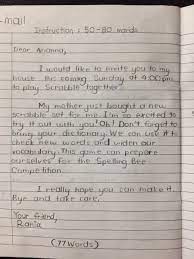 -mail
Instruction : 50-80 words
Dear Arianna,
I would like to invite you to my
house this coming Sunday at 4.00pm
to play Scrabble together.
My mother just bought a new
scrabble set for me. I'm so excited to
try it out with you! Oh! Don't forget to
bring your dictionary. We can use it to
check new words and widen our
vocabulary. This game can prepare
ourselves for the Spelling Bee
Competition.
I really hope you can make it.
Bye and take care.
Your friend,
Rania
(77 words)